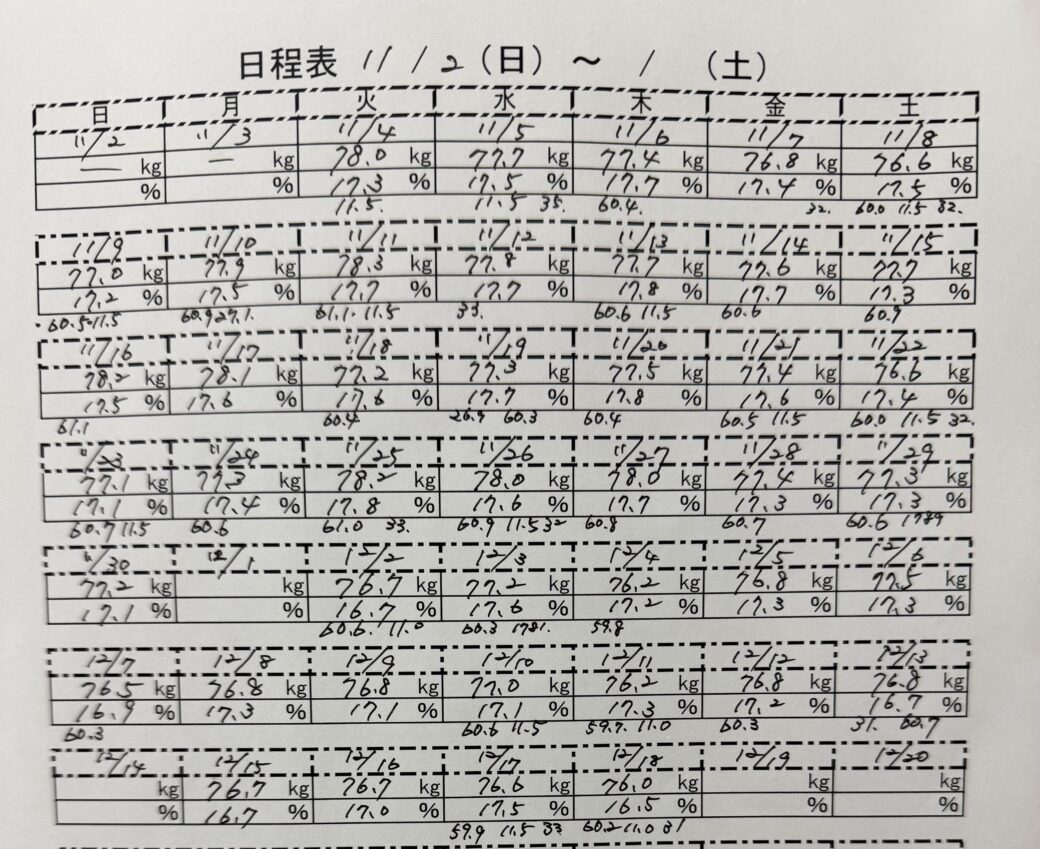 日程表 11/2(日) ~ / (土)
日 月 火 水 木 金 土
11/2 11/3 11/4 11/5 11/6 11/7 11/8
— kg — kg 78.0 kg 77.7 kg 77.4 kg 76.8 kg 76.6 kg
% % 17.3 % 17.5 % 17.7 % 17.4 % 17.5 %
11.5. 11.5 35. 60.4. 32. 60.0 11.5 32.
11/9 11/10 11/11 11/12 11/13 11/14 11/15
77.0 kg 77.9 kg 78.3 kg 77.8 kg 77.7 kg 77.6 kg 77.7 kg
17.2 % 17.5 % 17.7 % 17.7 % 17.8 % 17.7 % 17.3 %
60.5 11.5 60.9 27.1. 61.1. 11.5 33. 60.6 11.5 60.6 60.9
11/16 11/17 11/18 11/19 11/20 11/21 11/22
78.2 kg 78.1 kg 77.2 kg 77.3 kg 77.5 kg 77.4 kg 76.6 kg
17.5 % 17.6 % 17.6 % 17.7 % 17.8 % 17.6 % 17.4 %
61.1 60.4 26.9 60.3 60.4 60.5 11.5 60.0 11.5 32.
11/23 11/24 11/25 11/26 11/27 11/28 11/29
77.1 kg 77.3 kg 78.2 kg 78.0 kg 78.0 kg 77.4 kg 77.3 kg
17.1 % 17.4 % 17.8 % 17.6 % 17.7 % 17.3 % 17.3 %
60.7 11.5 60.6 61.0 33. 60.9 11.5 32 60.8 60.7 60.6 1789
11/30 12/1 12/2 12/3 12/4 12/5 12/6
77.2 kg kg 76.7 kg 77.2 kg 76.2 kg 76.8 kg 77.5 kg
17.1 % % 16.7 % 17.6 % 17.2 % 17.3 % 17.3 %
60.6. 11.0 60.3 1781. 59.8
12/7 12/8 12/9 12/10 12/11 12/12 12/13
76.5 kg 76.8 kg 76.8 kg 77.0 kg 76.2 kg 76.8 kg 76.8 kg
16.9 % 17.3 % 17.1 % 17.1 % 17.3 % 17.2 % 16.7 %
60.3 60.6 11.5 59.7. 11.0 60.3 31. 60.7
12/14 12/15 12/16 12/17 12/18 12/19 12/20
kg 76.7 kg 76.7 kg 76.6 kg 76.0 kg kg kg
% 16.7 % 17.0 % 17.5 % 16.5 % % %
59.9 11.5 33 60.2 11.0 31